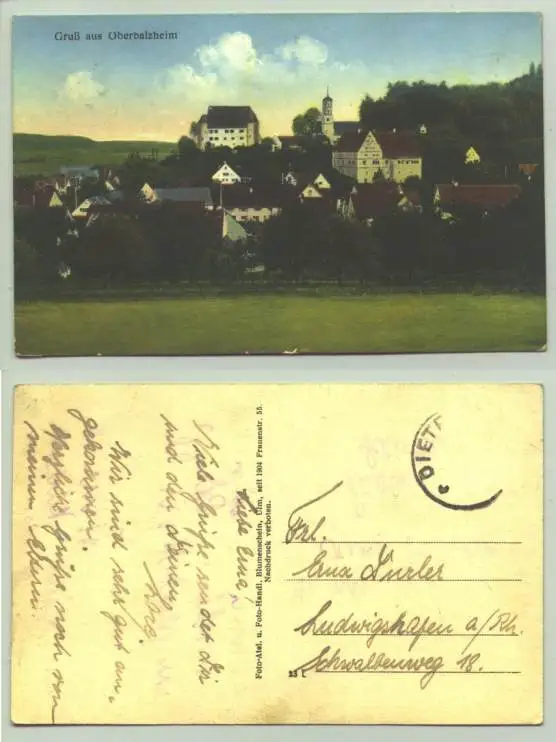 Gruß aus Oberbalzheim
Liebe Erna,
Viele Grüße sendet Dir
und den Deinen
Wir sind sehr gut an-
gekommen.
Herzliche Grüße noch von
meinen Eltern.
Foto-Atel. u. Foto-Handl. Blumenschein, Ulm, seit 1904 Frauenstr. 55.
Nachdruck verboten.
DIET
Frl.
Erna Durler
Ludwigshafen a/Rh.
Schwalbenweg 18.